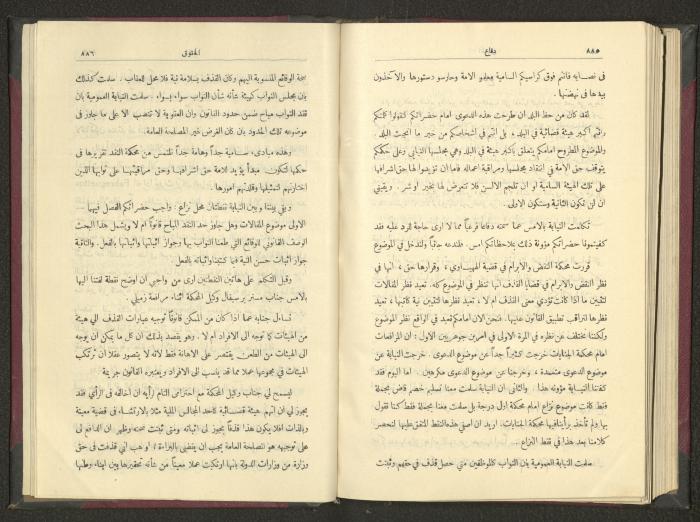 ٨٨٥ دفاع
فى نصابه فانتم فوق كراسيكم السامية معلمو الامة وحارسو دستورها والآخذون
بيدها فى نهضتها .
لقد كان من حظ البلد أن طرحت هذه الدعوى امام حضراتكم لتقولوا كلمتكم
وانتم أكبر هيئة قضائية فى البلد ، بل انتم فى اشخاصكم من خير ما انجبت البلد .
والموضوع المطروح امامكم يتعلق باكبر هيئة فى البلد وهى مجلسها النيابى وعلى حكمكم
يتوقف حق الأمة فى انتقاد مجلسها ومراقبة اعماله فاما ان تؤيدوا لها حق اشرافها
على تلك الهيئة السامية او ان تلجم الالسن فلا تتعرض لها بخير او شر . ويقينى
ان لن تكون الثانية وستكون الاولى .
تكلمت النيابة بالامس عما سمته دفاعا فرعياً مما لا ارى حاجة للرد عليه فقد
كفيتمونا حضراتكم مؤونة ذلك بملاحظاتكم امس . فلندعه جانباً ولندخل فى الموضوع
قررت محكمة النقض والابرام فى قضية الهيهياوى ، وقرارها حق ، انها فى
نظر النقض والابرام فى قضايا القذف انما تنظر فى الموضوع كله . تعيد نظر المقالات
لتتبين ما اذا كانت تؤدى معنى القذف ام لا ، تعيد نظرها لتتبين نية كاتبها ، تعيد
نظرها لتراقب تطبيق القانون عليها . فنحن الان امامكم نعيد فى الواقع نظر الموضوع
ولكننا نختلف عن نظره فى المرة الاولى فى امرين جوهريين الاول : ان المرافعات
امام محكمة الجنايات خرجت كثيراً جداً عن موضوع الدعوى . خرجت النيابة عن
موضوع الدعوى متعمدة ، وخرجنا عن موضوع الدعوى مكرهين . اما اليوم فقد
كفتنا النيابة مؤونة هذا . والثانى ان النيابة سلمت معنا تسليم خصم قاض بمجملة
نقط كانت موضوع نزاع امام محكمة اول درجة بل سلمت معنا بجملة نقط كنا نقول
بها ولم تأخذ برأينا فيها محكمة الجنايات . اريد ان احصى هذه النقط المتفق عليها لنحصر
كلامنا بعد هذا فى نقط النزاع .
سلمت النيابة العمومية بان النواب كالموظفين متى حصل قذف فى حقهم وثبتت
الحقوق ٨٨٦
صحة الوقائع المنسوبة اليهم وكان القذف بسلامة نية فلا محل للعقاب . سلمت كذلك
بان مجلس النواب كهيئة شأنه شأن النواب سواء بسواء . سلمت النيابة العمومية بان
نقد النواب مباح ضمن حدود القانون وان العقوبة لا تنصب الا على ما جاوز فى
موضوعه تلك الحدود بان كان الغرض غير المصلحة العامة .
وهذه مبادىء سامية جداً وهامة جداً نلتمس من محكمة النقد تقريرها فى
حكمها لتكون مبدأ يؤيد للامة حق اشرافها وحق مراقبتها على نوابها الذين
اختارتهم لتمثيلها وقلدتهم امورها .
وبقى بيننا وبين النيابة نقطتان محل نزاع : واجب حضراتكم الفصل فيهما
الاولى موضوع المقالات وهل جاوز حد النقد المباح قانونا ام لا ويشمل هذا البحث
الوصف القانونى للوقائع التى طعنا النواب بها وجواز اثباتها واثباتها بالفعل . والثانية
جواز اثبات حسن النية فيما كتبنا واثباته بالفعل .
وقبل التكلم على هاتين النقطتين ارى من واجبى ان اوضح نقطة لفتنا اليها
بالامس جناب مستر برسيفال وكيل المحكمة اثناء مرافعة زميلى .
تساءل جنابه عما اذا كان من الممكن قانونا توجيه عبارات القذف الى هيئة
من الهيئات كما توجه الى الافراد ام لا . وهو يقصد بذلك ان كل ما يمكن ان يوجه
الى الهيئات من الطعن يقتصر على الاهانة فقط لانه لا يتصور عقلا أن ترتكب
الهيئات فى مجموعها عملا مما قد ينسب الى الافراد ويعتبره القانون جريمة
ليسمح لى جناب وكيل المحكمة مع احترامى التام لرأيه ان اخالفه فى الرأى فقد
يجوز لى ان اتهم هيئة قضائية كأحد المجالس الملية مثلا بالارتشاء فى قضية معينة
بالذات افلا يكون هذا قذفاً يجوز لى اثباته ومتى ثبتت صحته وظهر ان الدافع لى
على توجيهه هو المصلحة العامة يجب ان يقضى بالبراءة ؟ او هب انى قذفت فى حق
وزارة من وزارات الدولة بانها ارتكبت عملا معيناً من شأنه تحقيرها بين ابناء وطنها